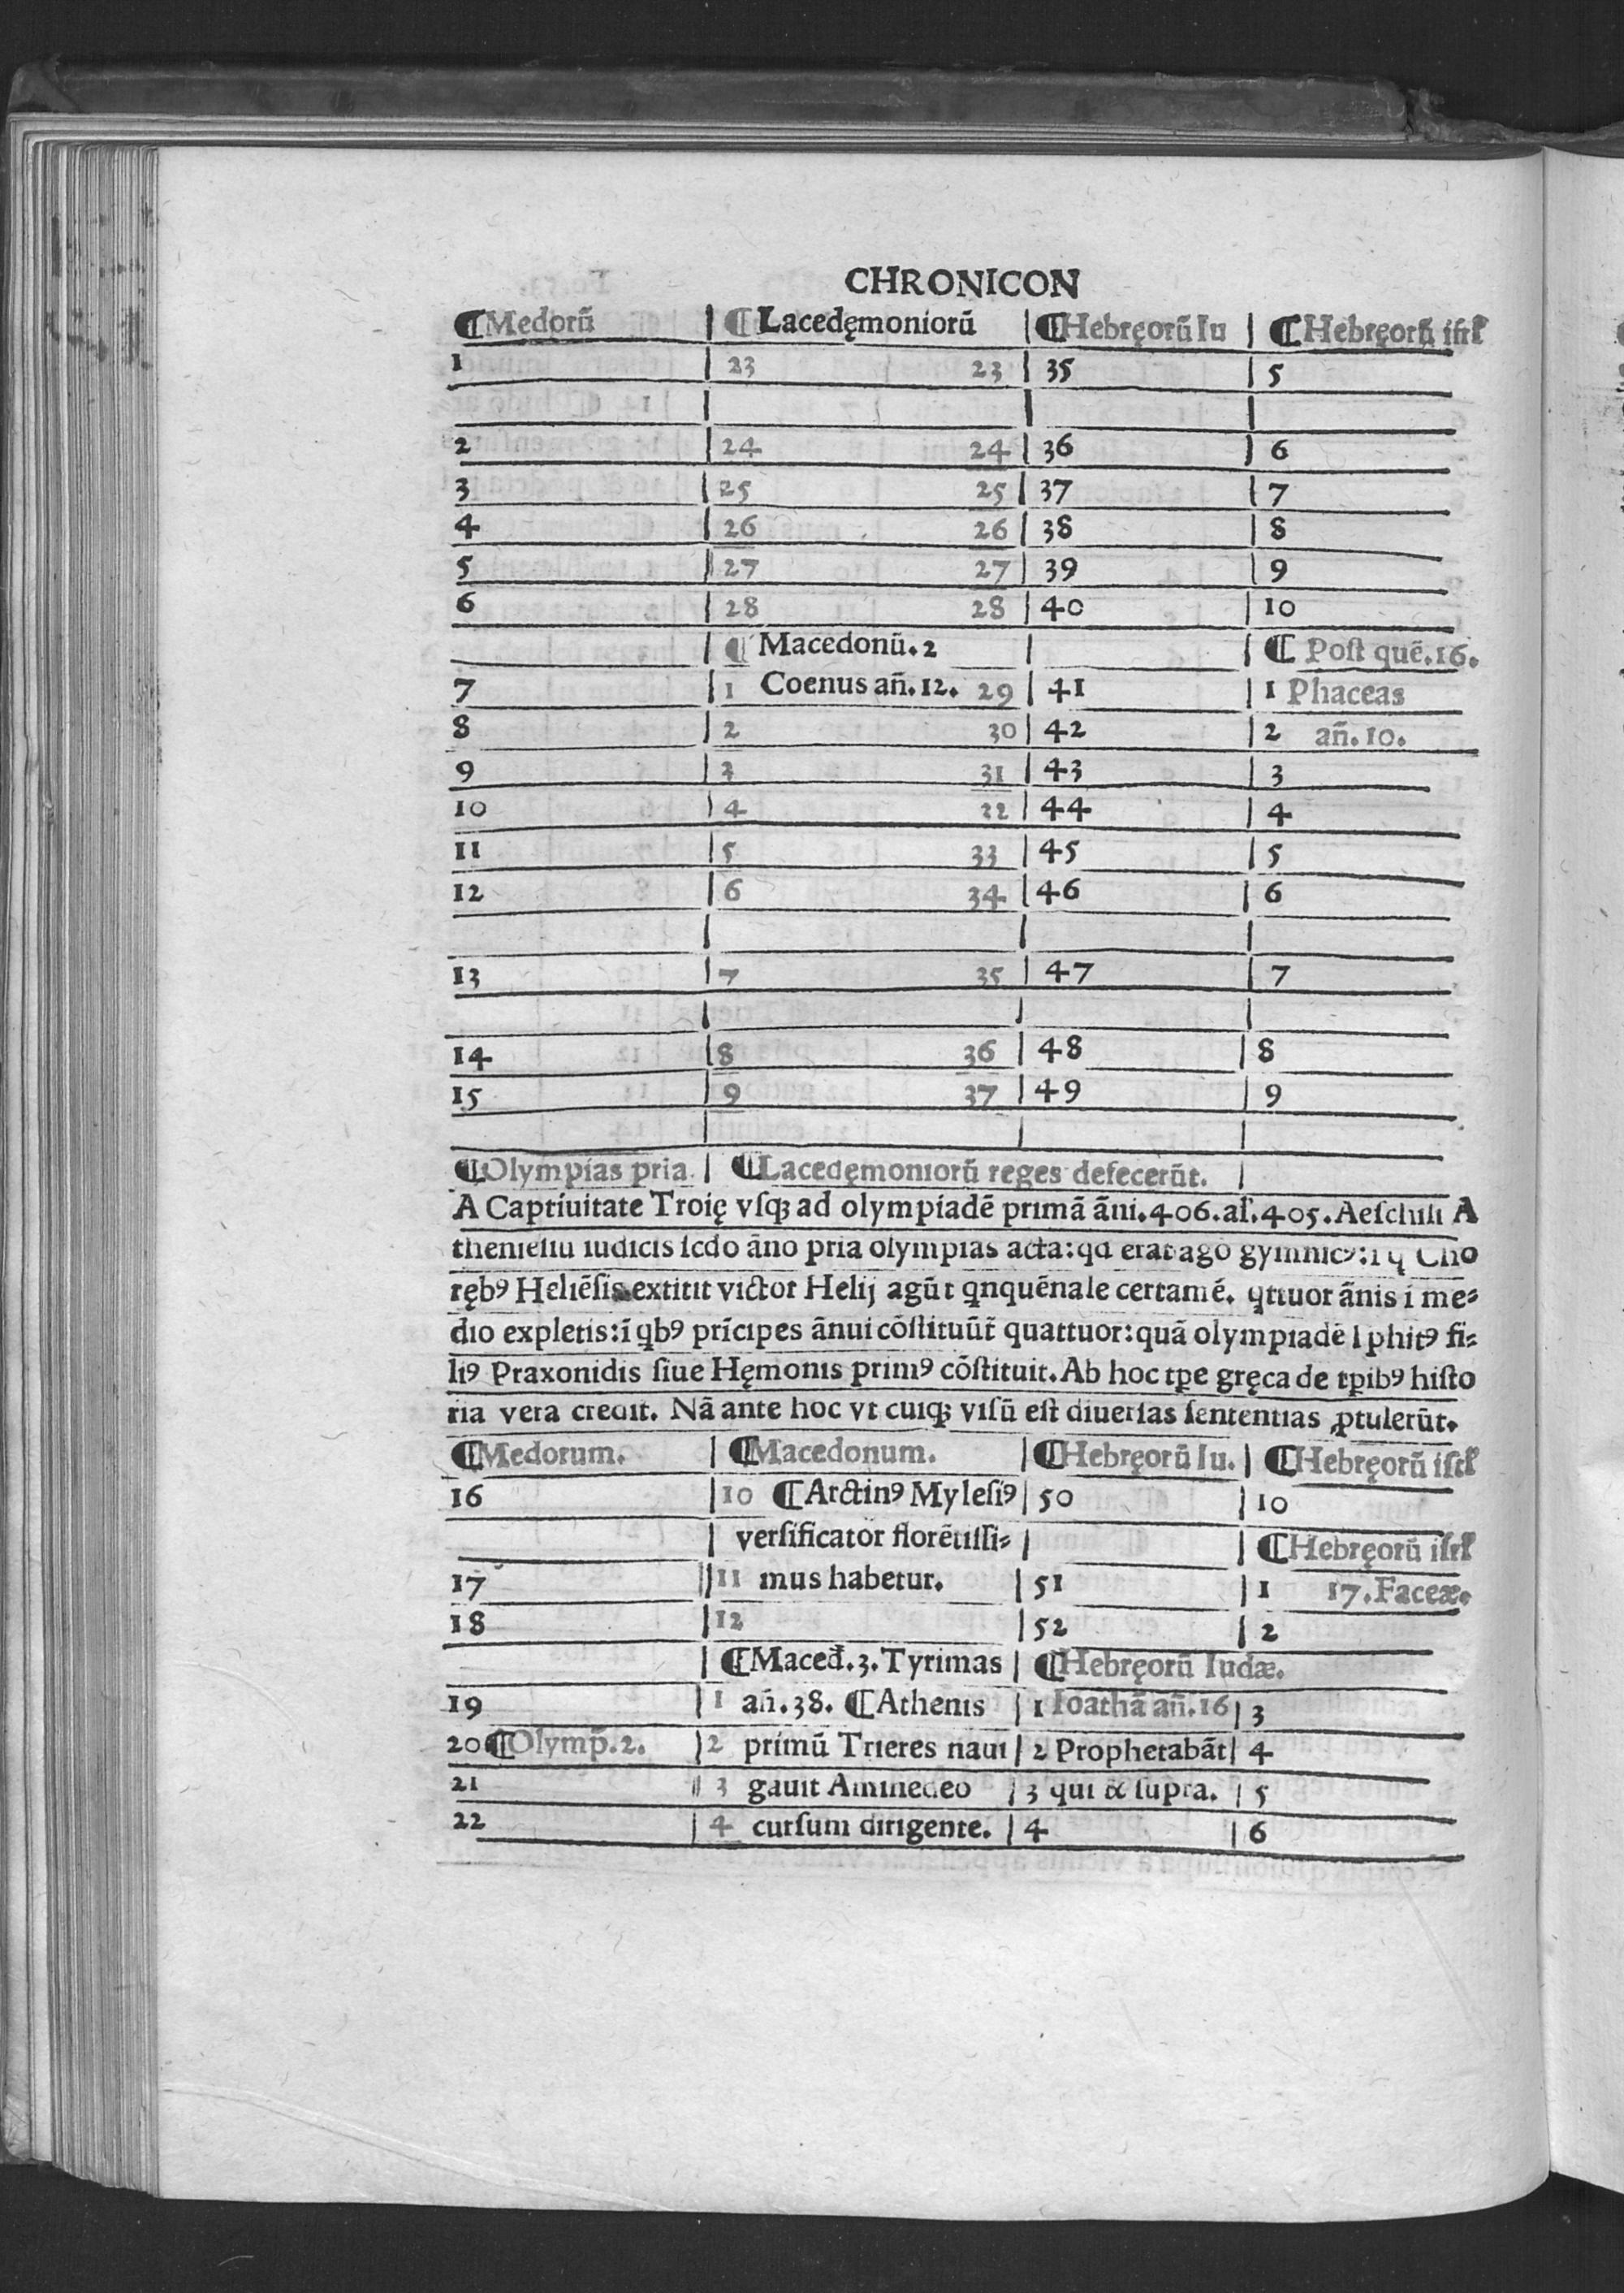 CHRONICON
¶Medorũ ¶Lacedęmoniorũ ¶Hebręorũ Iu ¶Hebręorũ iſrł
1 23 23 35 5
2 24 24 36 6
3 25 25 37 7
4 26 26 38 8
5 27 27 39 9
6 28 28 40 10
¶ Macedonũ. 2 ¶ Poſt quẽ. 16.
7 1 Coenus añ. 12. 29 41 1 Phaceas
8 2 30 42 2 añ. 10.
9 3 31 43 3
10 4 22 44 4
11 5 33 45 5
12 6 34 46 6
13 7 35 47 7
14 8 36 48 8
15 9 37 49 9
¶Olympias pria. ¶Lacedęmoniorũ reges defecerũt.
A Captiuitate Troię vſqꝫ ad olympiadẽ primã ãni. 406. aſ. 405. Aeſchili A
thenieſiũ iudicis ſcdo ãno pria olympias acta: qđ erat ago gymnicꝰ: ĩ q̃ Cho
rębꝰ Heliẽſis extitit victor Helij agũt qnquẽnale certamẽ. qttuor ãnis ĩ me⸗
dio expletis: ĩ qbꝰ prĩcipes ãnui cõſtituũt quattuor: quã olympiadẽ Iphitꝰ fi⸗
liꝰ Praxonidis ſiue Hęmonis primꝰ cõſtituit. Ab hoc tꝑe gręca de tꝑibꝰ hiſto
ria vera credit. Nã ante hoc vt cuiqꝫ viſũ eſt diuerſas ſententias ꝓtulerũt.
¶Medorum. ¶Macedonum. ¶Hebręorũ Iu. ¶Hebręorũ iſrł
16 10 ¶Arctinꝰ Myleſiꝰ 50 10
verſificator florẽtiſſi⸗ ¶Hebręorũ iſrł
17 11 mus habetur. 51 1 17. Faceæ.
18 12 52 2
¶Maceđ. 3. Tyrimas ¶Hebręorũ Iudæ.
19 1 añ. 38. ¶Athenis 1 Ioathã añ. 16 3
20 ¶Olymp̃. 2. 2 primũ Trieres naui 2 Prophetabãt 4
21 3 gauit Aminedeo 3 qui & ſupra. 5
22 4 curſum dirigente. 4 6